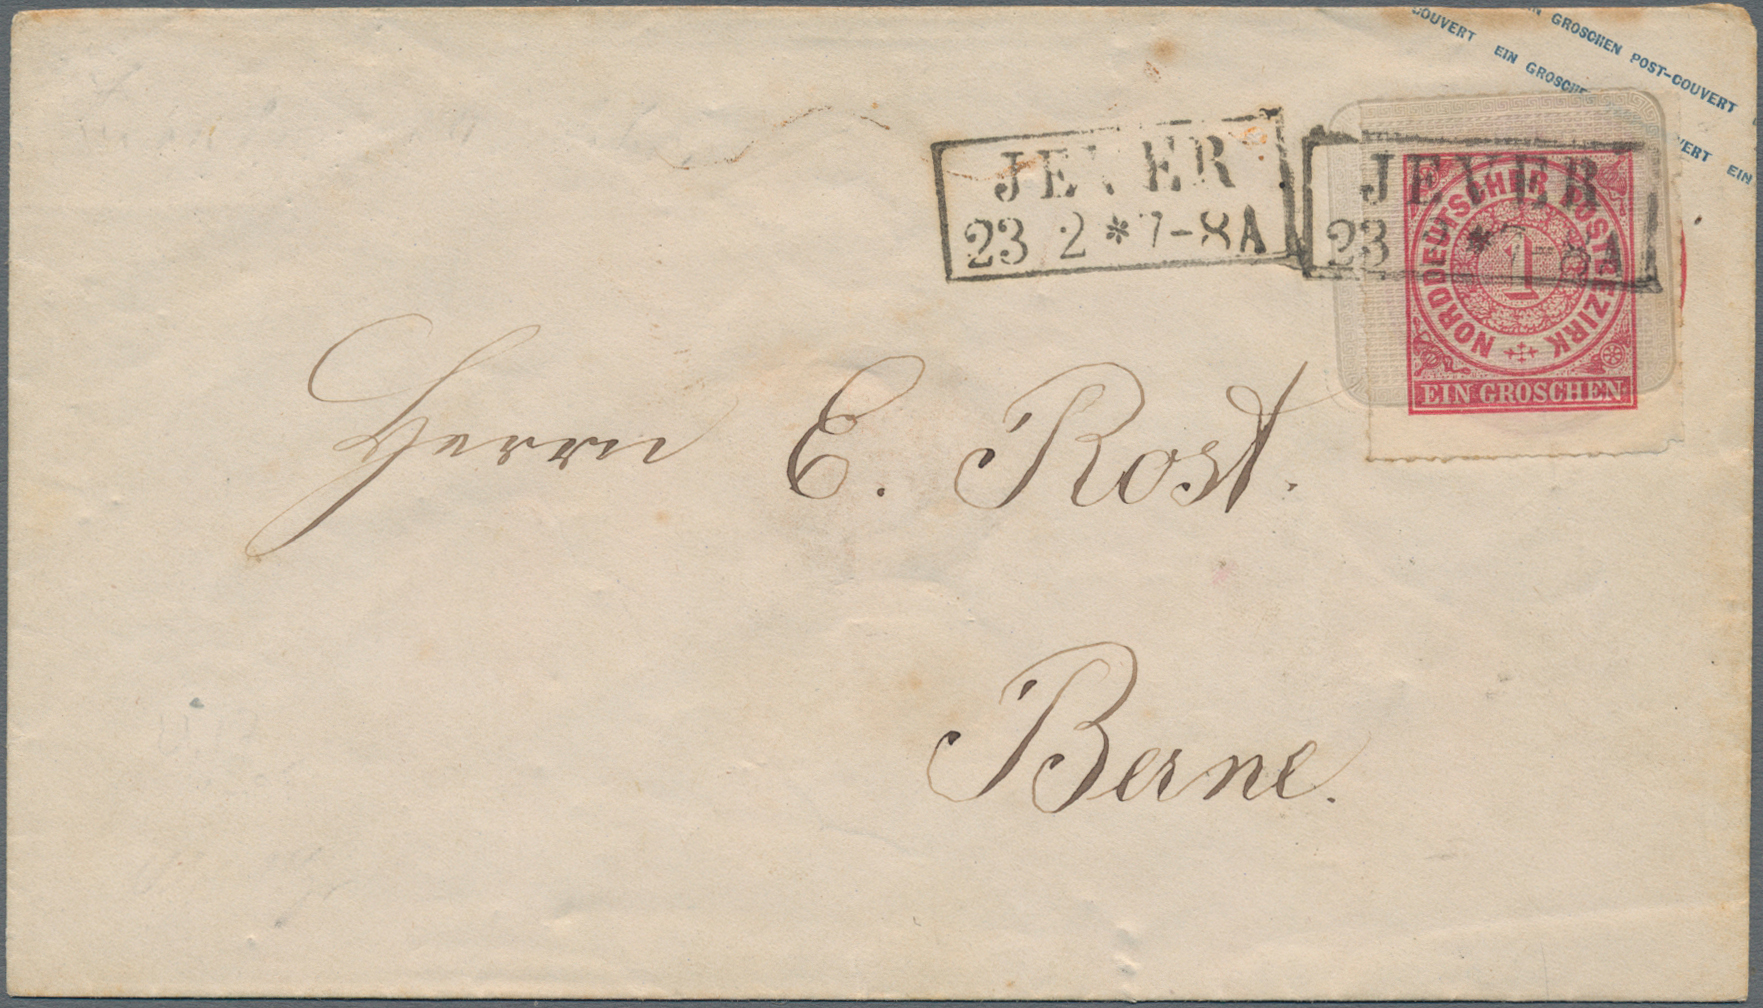 N GROSCHEN POST-COUVERT
COUVERT EIN GROSCHE
VERT EIN
JEVER
23 2 * 7-8A
JEVER
23 * 7-8A
NORDDEUTSCHER POSTBEZIRK
1
EIN GROSCHEN
Herrn E. Rost.
Berne.